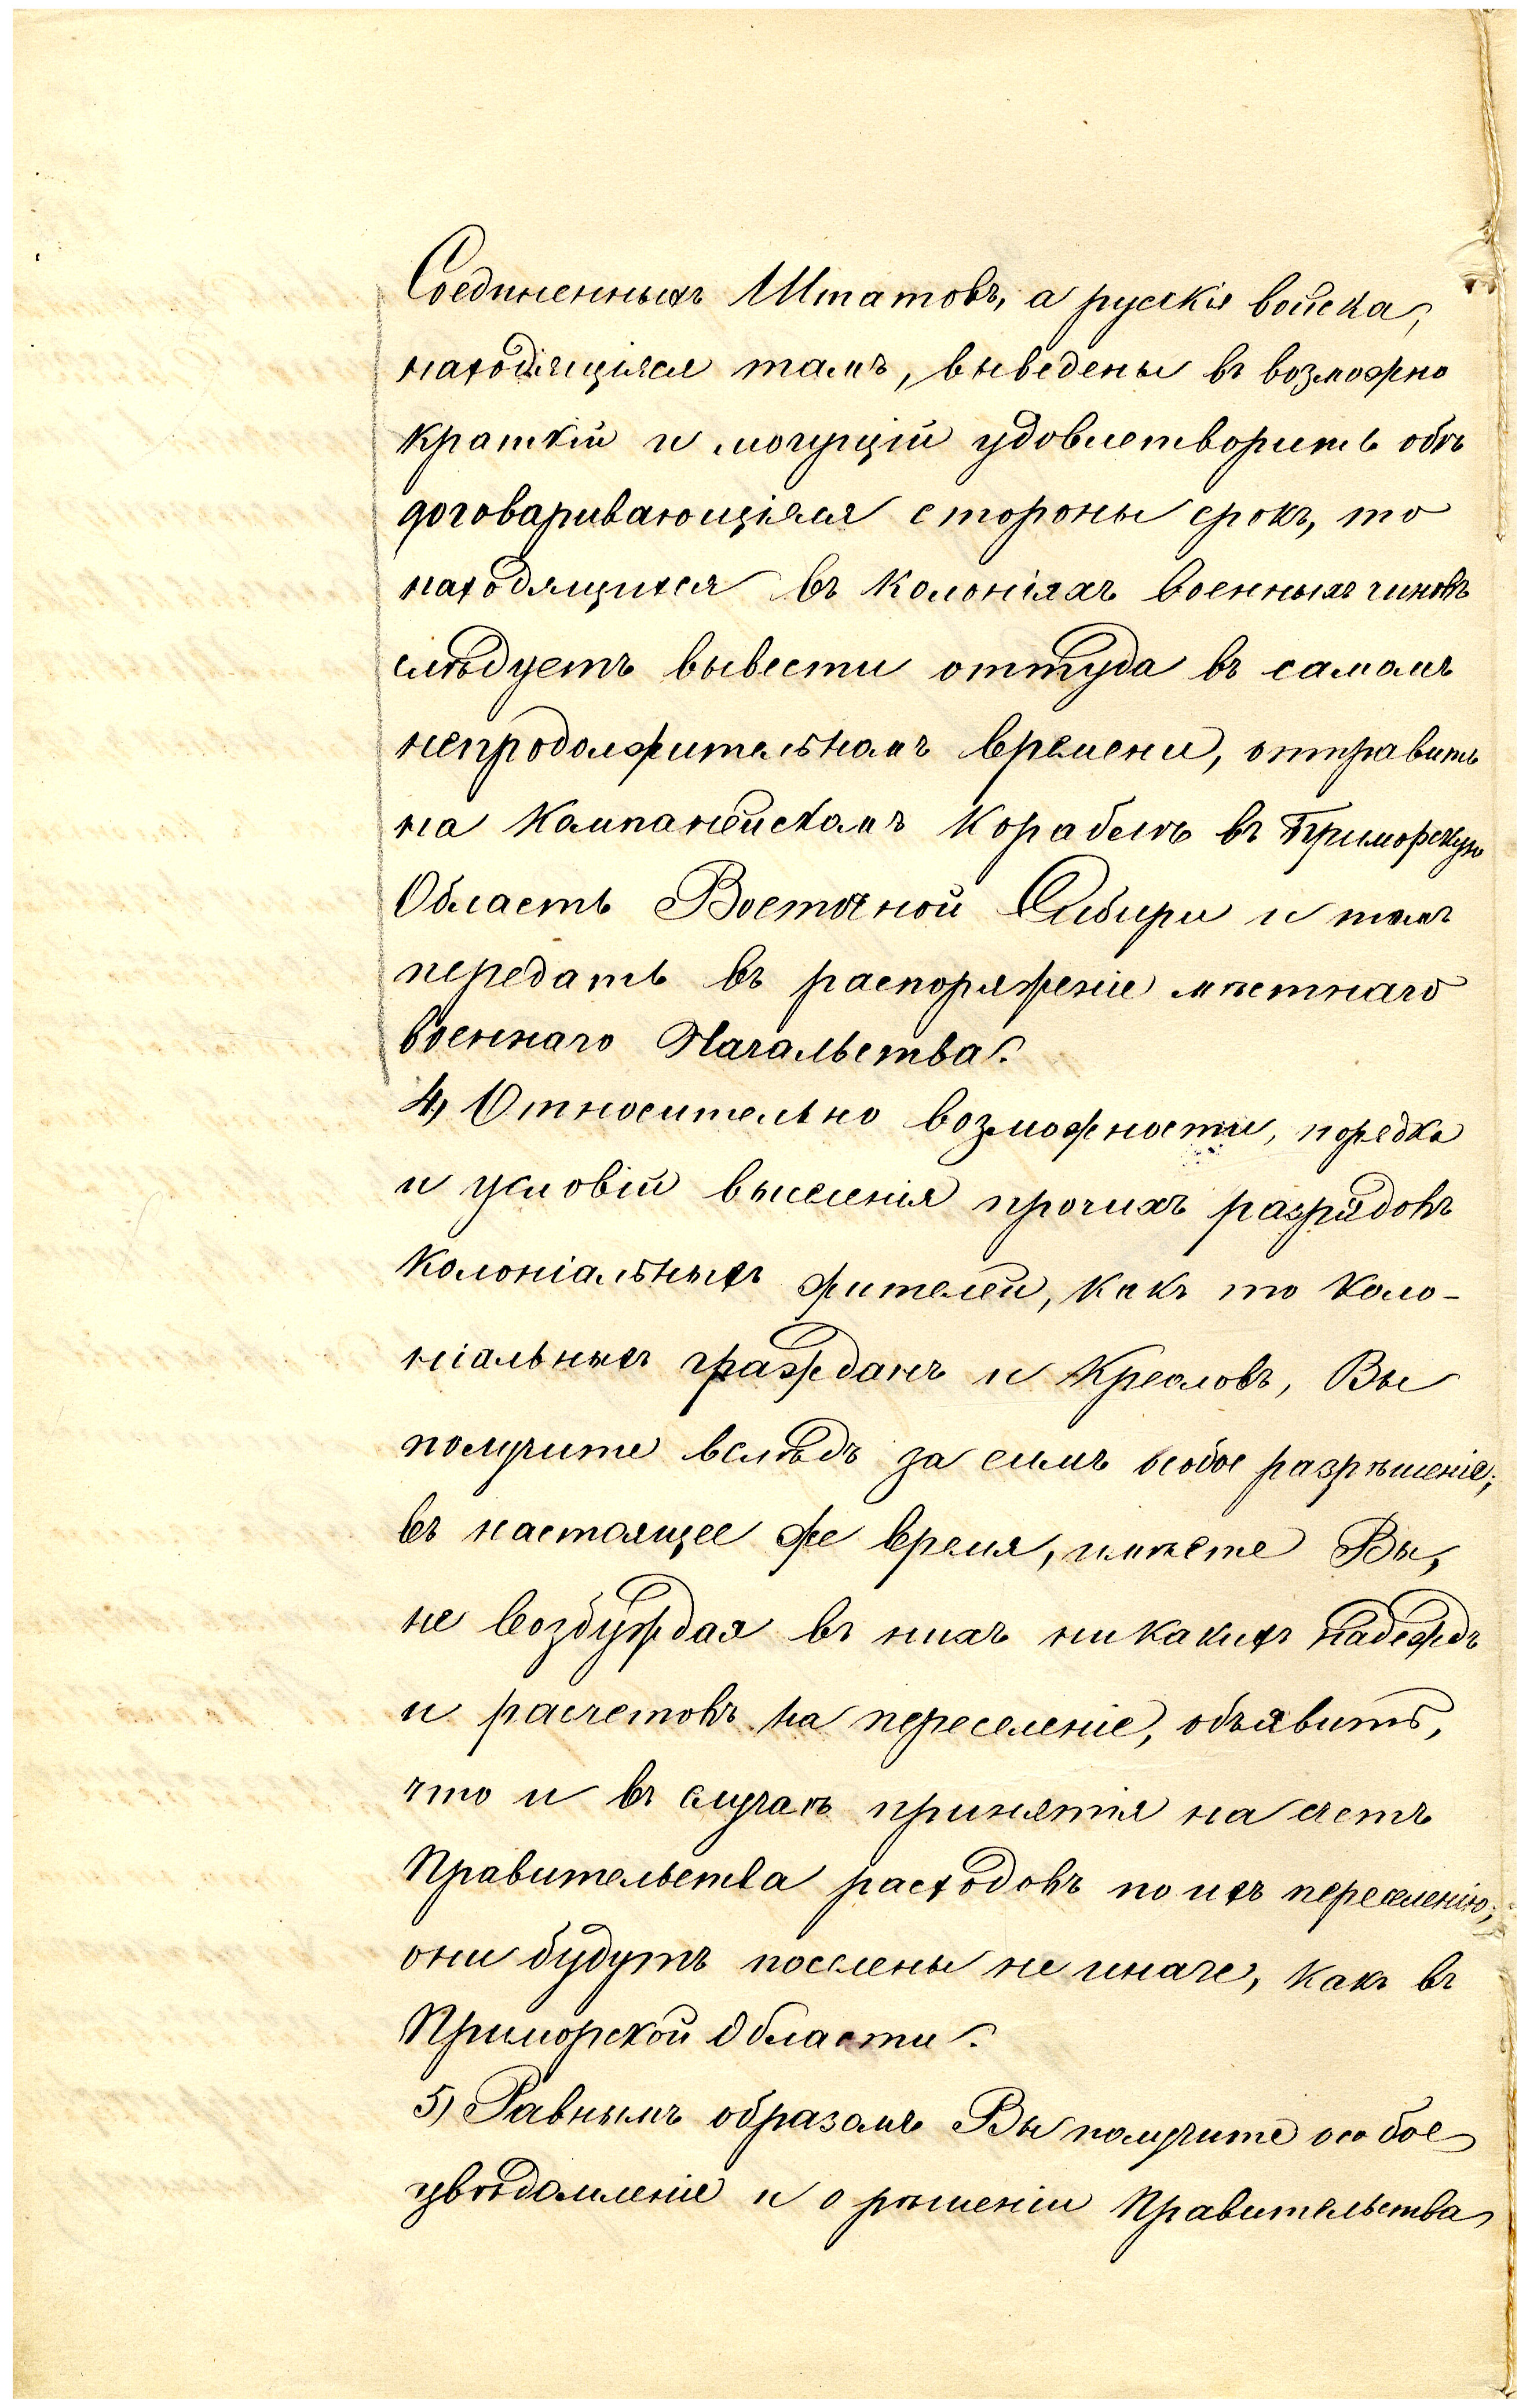 Соединенныхъ Штатовъ, а русскія войска,
находящіяся тамъ, выведены въ возможно
краткій и могущій удовлетворить обѣ
договаривающіяся стороны срокъ, то
находящихся въ Колоніяхъ военныхъ чиновъ
слѣдуетъ вывести оттуда въ самомъ
непродолжительномъ времени, отправить
на Компанейскомъ Кораблѣ въ Приморскую
Область Восточной Сибири и тамъ
передать въ распоряженіе мѣстнаго
военнаго Начальства.
4) Относительно возможности, порядка
и условій выселенія прочихъ разрядовъ
Колоніальныхъ жителей, какъ то Коло-
ніальныхъ гражданъ и Креоловъ, Вы
получите вслѣдъ за симъ особое разрѣшеніе;
въ настоящее же время, имѣете Вы,
не возбуждая въ нихъ никакихъ надеждъ
и расчетовъ на переселеніе, объявить,
что и въ случаѣ принятія на счетъ
Правительства расходовъ по ихъ переселенію,
они будутъ поселены не иначе, какъ въ
Приморской Области.
5) Равнымъ образомъ Вы получите особое
увѣдомленіе и о рѣшеніи Правительства